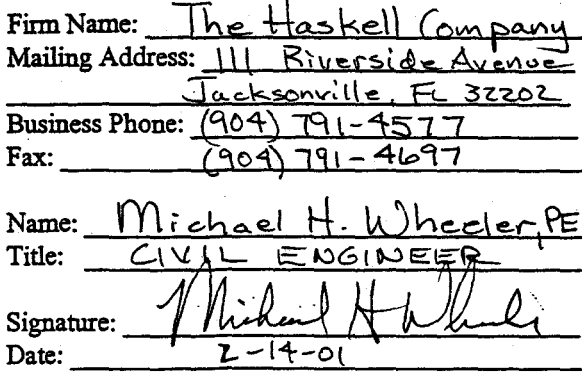 Firm Name: The Haskell Company
Mailing Address: 111 Riverside Avenue
Jacksonville, FL 32202
Business Phone: (904) 791-4577
Fax: (904) 791-4697
Name: Michael H. Wheeler, PE
Title: CIVIL ENGINEER
Signature: Michael H Wheeler
Date: 2-14-01